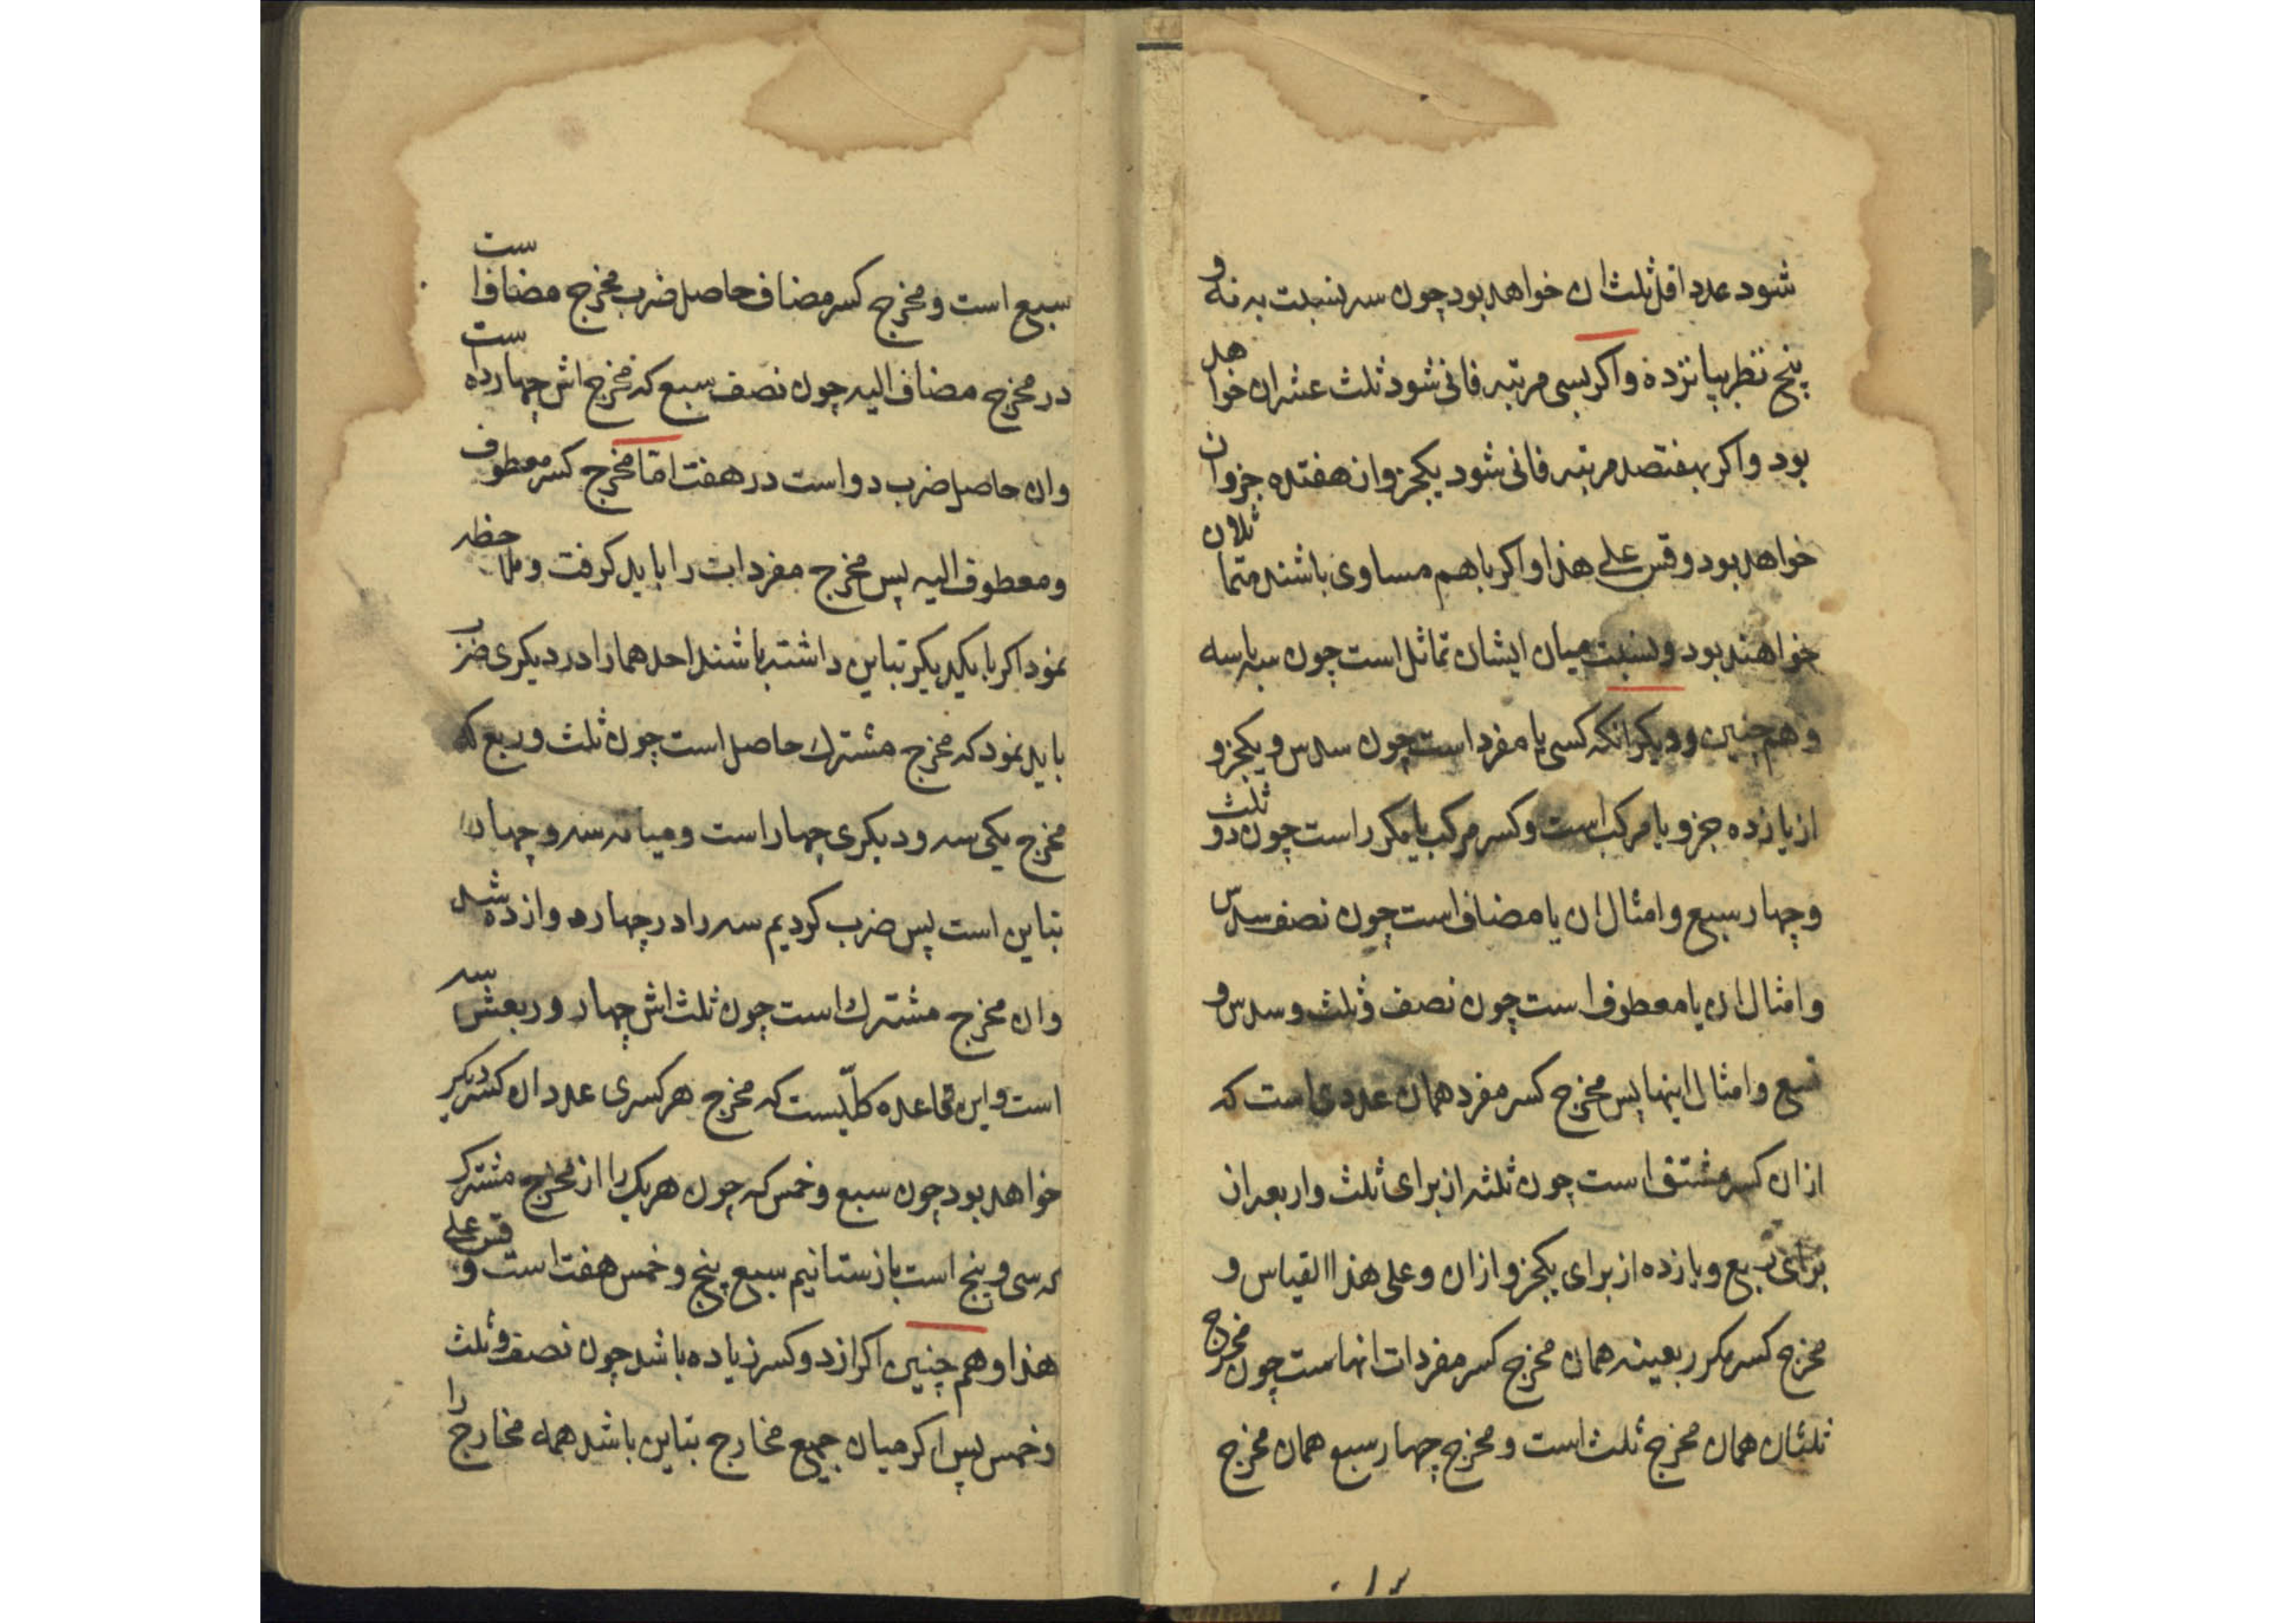 شود عدد اقل ثلث ان خواهد بود چون سه بنسبت به نه و
پنج نظر بپانزده و اکر بسی مرتبه فانی شود ثلث عشر ان خواهد
بود و اکر بهفتصد مرتبه فانی شود یکجزو از هفتصد جزو ان
خواهد بود و قس علی هذا و اکر باهم مساوی باشند متماثلان
خواهند بود و نسبت میان ایشان تماثل است چون سه با سه
و هم چنین و دیکر انکه کسر یا مفرد است چون سدس و یکجزو
از یازده جزو یا مرکب است و کسر مرکب یا مکرر است چون دو ثلث
و چهار سبع و امثال ان یا مضاف است چون نصف سدس
و امثال ان یا معطوف است چون نصف و ثلث و سدس و
تسع و امثال اینها پس مخرج کسر مفرد همان عددی است که
از ان کسر مشتق است چون ثلثه از برای ثلث و اربعه از
برای ربع و یازده از برای یکجزو از ان و علی هذا القیاس و
مخرج کسر مکرر بعینه همان مخرج کسر مفردات انهاست چون مخرج
ثلثان همان مخرج ثلث است و مخرج چهار سبع همان مخرج
۱۲
سبع است و مخرج کسر مضاف حاصل ضرب مخرج مضاف است
در مخرج مضاف الیه چون نصف سبع که مخرج اش چهارده است
و ان حاصل ضرب دو است در هفت اما مخرج کسر معطوف
و معطوف الیه پس مخرج مفردات را باید کرفت و ملاحظه
نمود اکر با یکدیکر تباین داشته باشند احدهما را در دیکری ضرب
باید نمود که مخرج مشترک حاصل است چون ثلث و ربع که
مخرج یکی سه و دیکری چهار است و میانه سه و چهار
تباین است پس ضرب کردیم سه را در چهار دوازده شد
و ان مخرج مشترک است چون ثلث اش چهار و ربعش سه
است و این قاعده کلّیست که مخرج هر کسری عدد ان کسر دیکر
خواهد بود چون سبع و خمس که چون هر یک را از مخرج مشترک
که سی و پنج است باز ستانیم سبع پنج و خمس هفت است و قس علی
هذا و هم چنین اکر از دو کسر زیاده باشد چون نصف و ثلث
و خمس پس اکر میان جمیع مخارج تباین باشد همه مخارج را